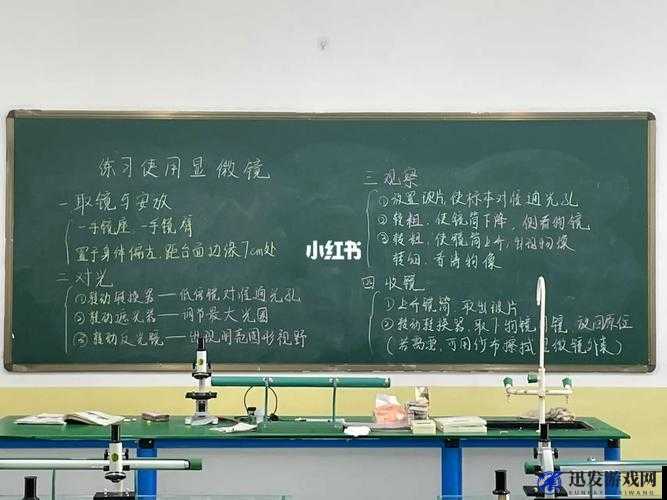 练习使用显微镜
一 取镜与安放
一手镜座 一手镜臂
置于身体偏左,距台面边缘7cm处
二 对光
①转动转换器——低倍镜对准通光孔
②转动遮光器——调节最大光圈
③转动反光镜——出现明亮圆形视野
三 观察
①放置玻片,使标本对准通光孔
②转粗,使镜筒下降,侧看物镜
③转粗,使镜筒上升,物像
转细,看清物像
四 收镜
①上升镜筒 取出玻片
②转动转换器,取下物镜 镜 放回原位
(若需要,可用纱布擦拭显微镜外表)
小红书
迅发游戏网